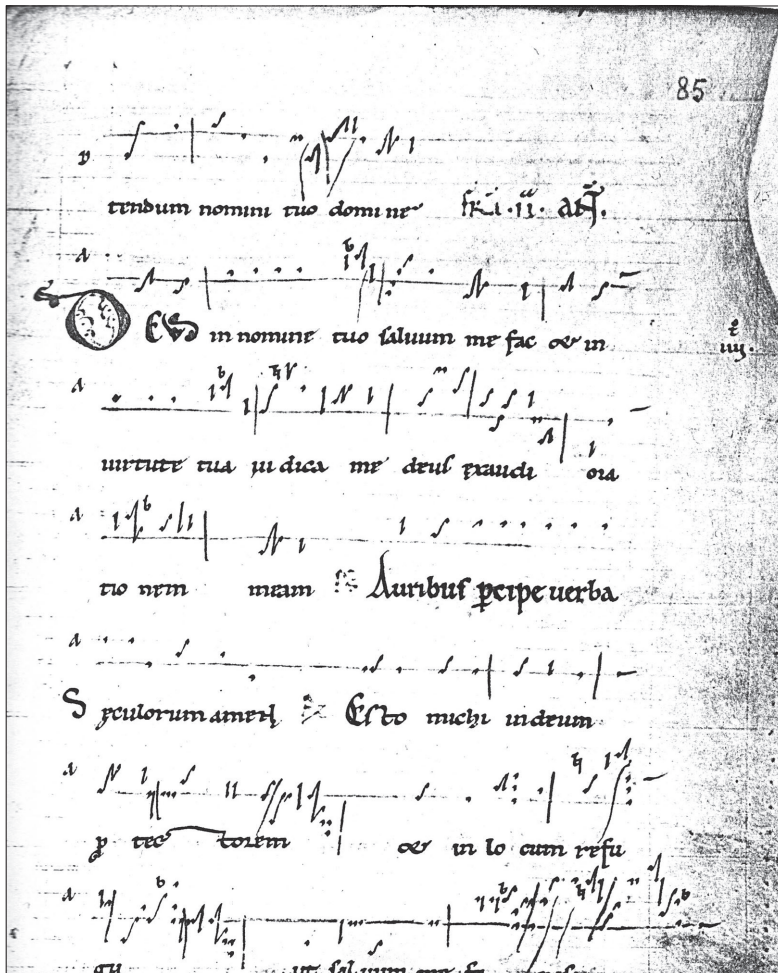 85
tendum nomini tuo domine
DEUS in nomine tuo saluum me fac & in
uirtute tua iudica me deus exaudi ora
tio nem meam Auribus pcipe uerba
Seculorum amen Esto michi indeum
p tec torem & in lo cum refu
gu ut sal uum me fa